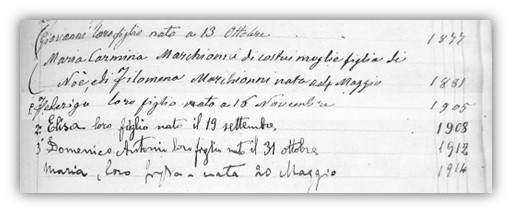 Giovanni loro figlio nato a 13 Ottobre 1877
Maria Carmina Marchionni di costui moglie figlia di
Noè, e di Filomena Marchionni nata a dì Maggio 1881
loro figlio nato a 16 Novembre 1905
2° Elisa loro figlia nata il 19 settembre, 1908
3° Domenico Antonio loro figlio nato il 31 ottobre 1912
Maria, loro figlia - nata 20 Maggio 1914